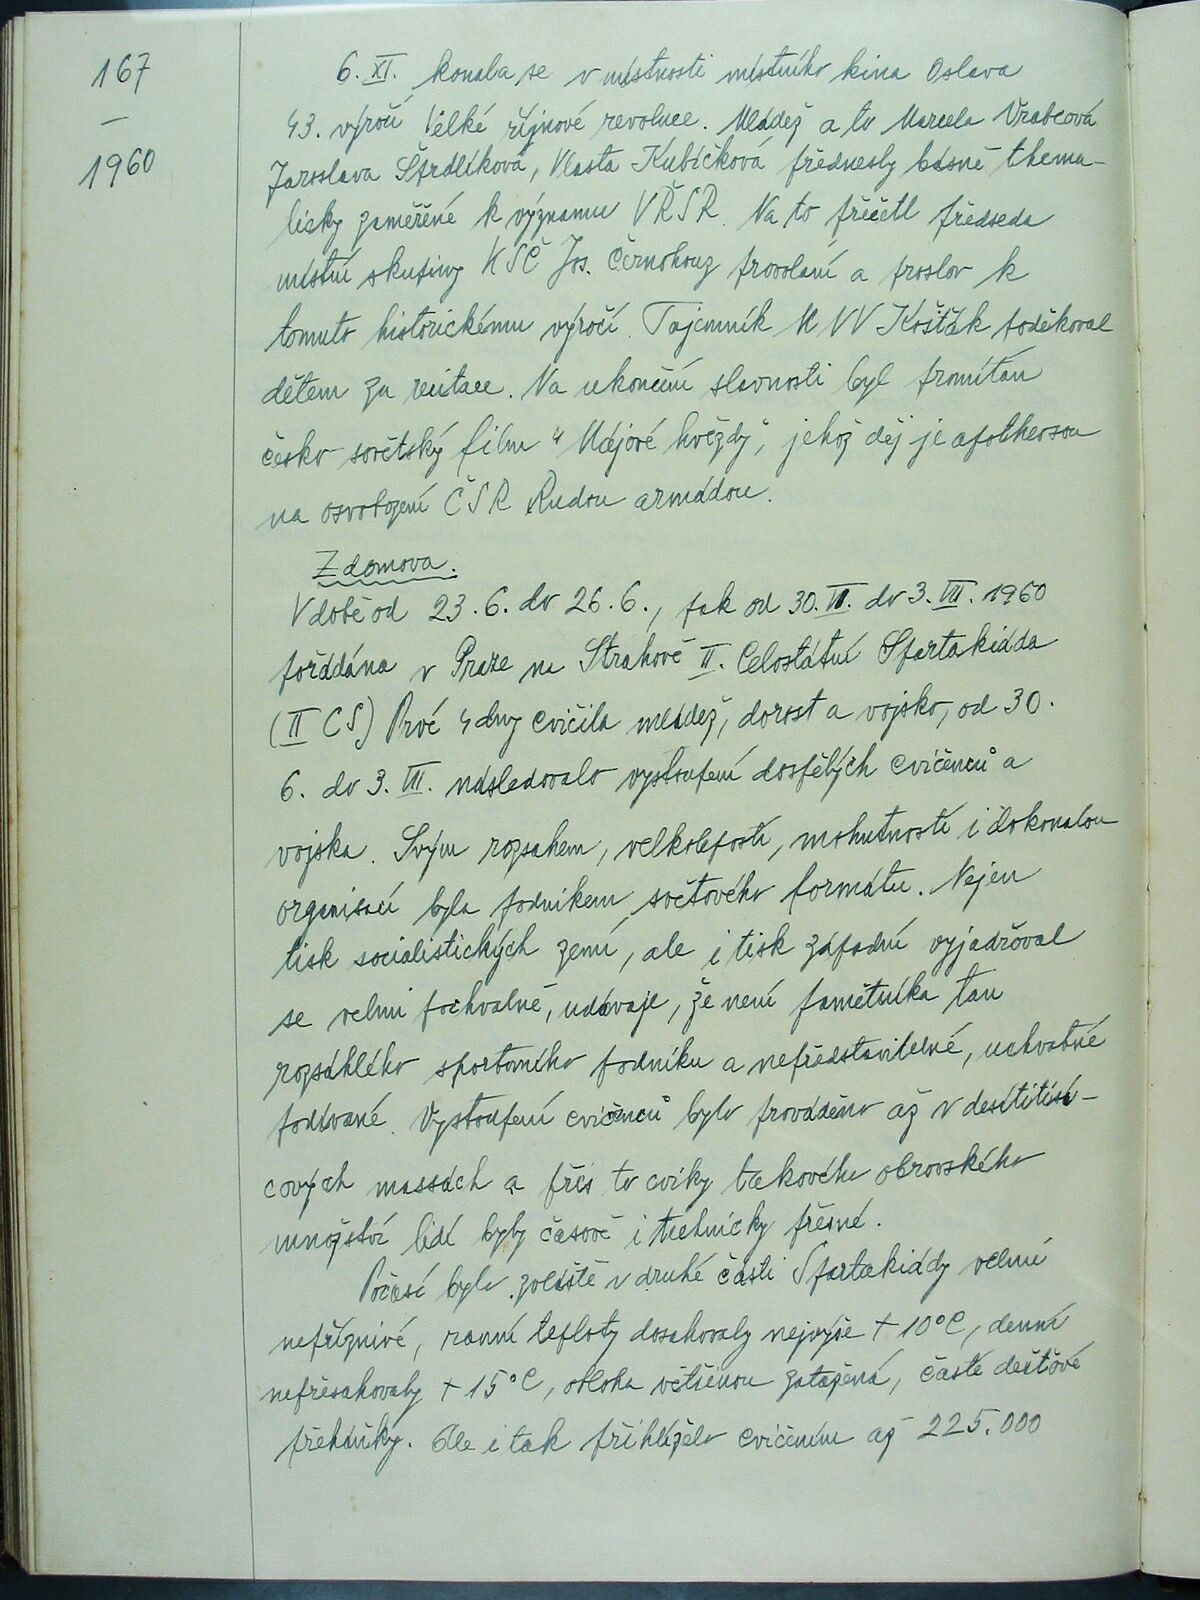 167
—
1960
6. XI. konala se v místnosti místního kina Oslava
43. výročí Velké říjnové revoluce. Mládež a to Marcela Vrabcová
Jaroslava Štrdlíková, Vlasta Kubíčková přednesly básně thema-
ticky zaměřené k významu VŘSR. Na to přečetl předseda
místní skupiny KSČ Jos. Černohouz provolání a proslov k
tomuto historickému výročí. Tajemník MNV Košťák poděkoval
dětem za recitace. Na ukončení slavnosti byl promítán
česko sovětský film "Májové hvězdy", jehož děj je apotheosou
na osvobození ČSR Rudou armádou.
Z domova.
V době od 23.6. do 26.6., pak od 30.VI. do 3.VII. 1960
pořádána v Praze na Strahově II. Celostátní Spartakiáda
(II CS) Prvé 4 dny cvičila mládež, dorost a vojsko, od 30.
6. do 3. VII. následovalo vystoupení dospělých cvičenců a
vojska. Svým rozsahem, velkolepostí, mohutností i dokonalou
organisací byla podnikem světového formátu. Nejen
tisk socialistických zemí, ale i tisk západní vyjadřoval
se velmi pochvalně, udávaje, že není pamětníka tak
rozsáhlého sportovního podniku a nepředstavitelné, uchvatné
podívané. Vystoupení cvičenců bylo prováděno až v desítitisí-
cových massách a přes to cviky takového obrovského
množství lidí byly časově i technicky přesné.
Počasí bylo zvláště v druhé části Spartakiády velmi
nepříznivé, ranní teploty dosahovaly nejvýše + 10°C, denní
nepřesahovaly + 15°C, obloha většinou zatažená, časté dešťové
přeháňky. Ale i tak přihlíželo cvičením až 225.000